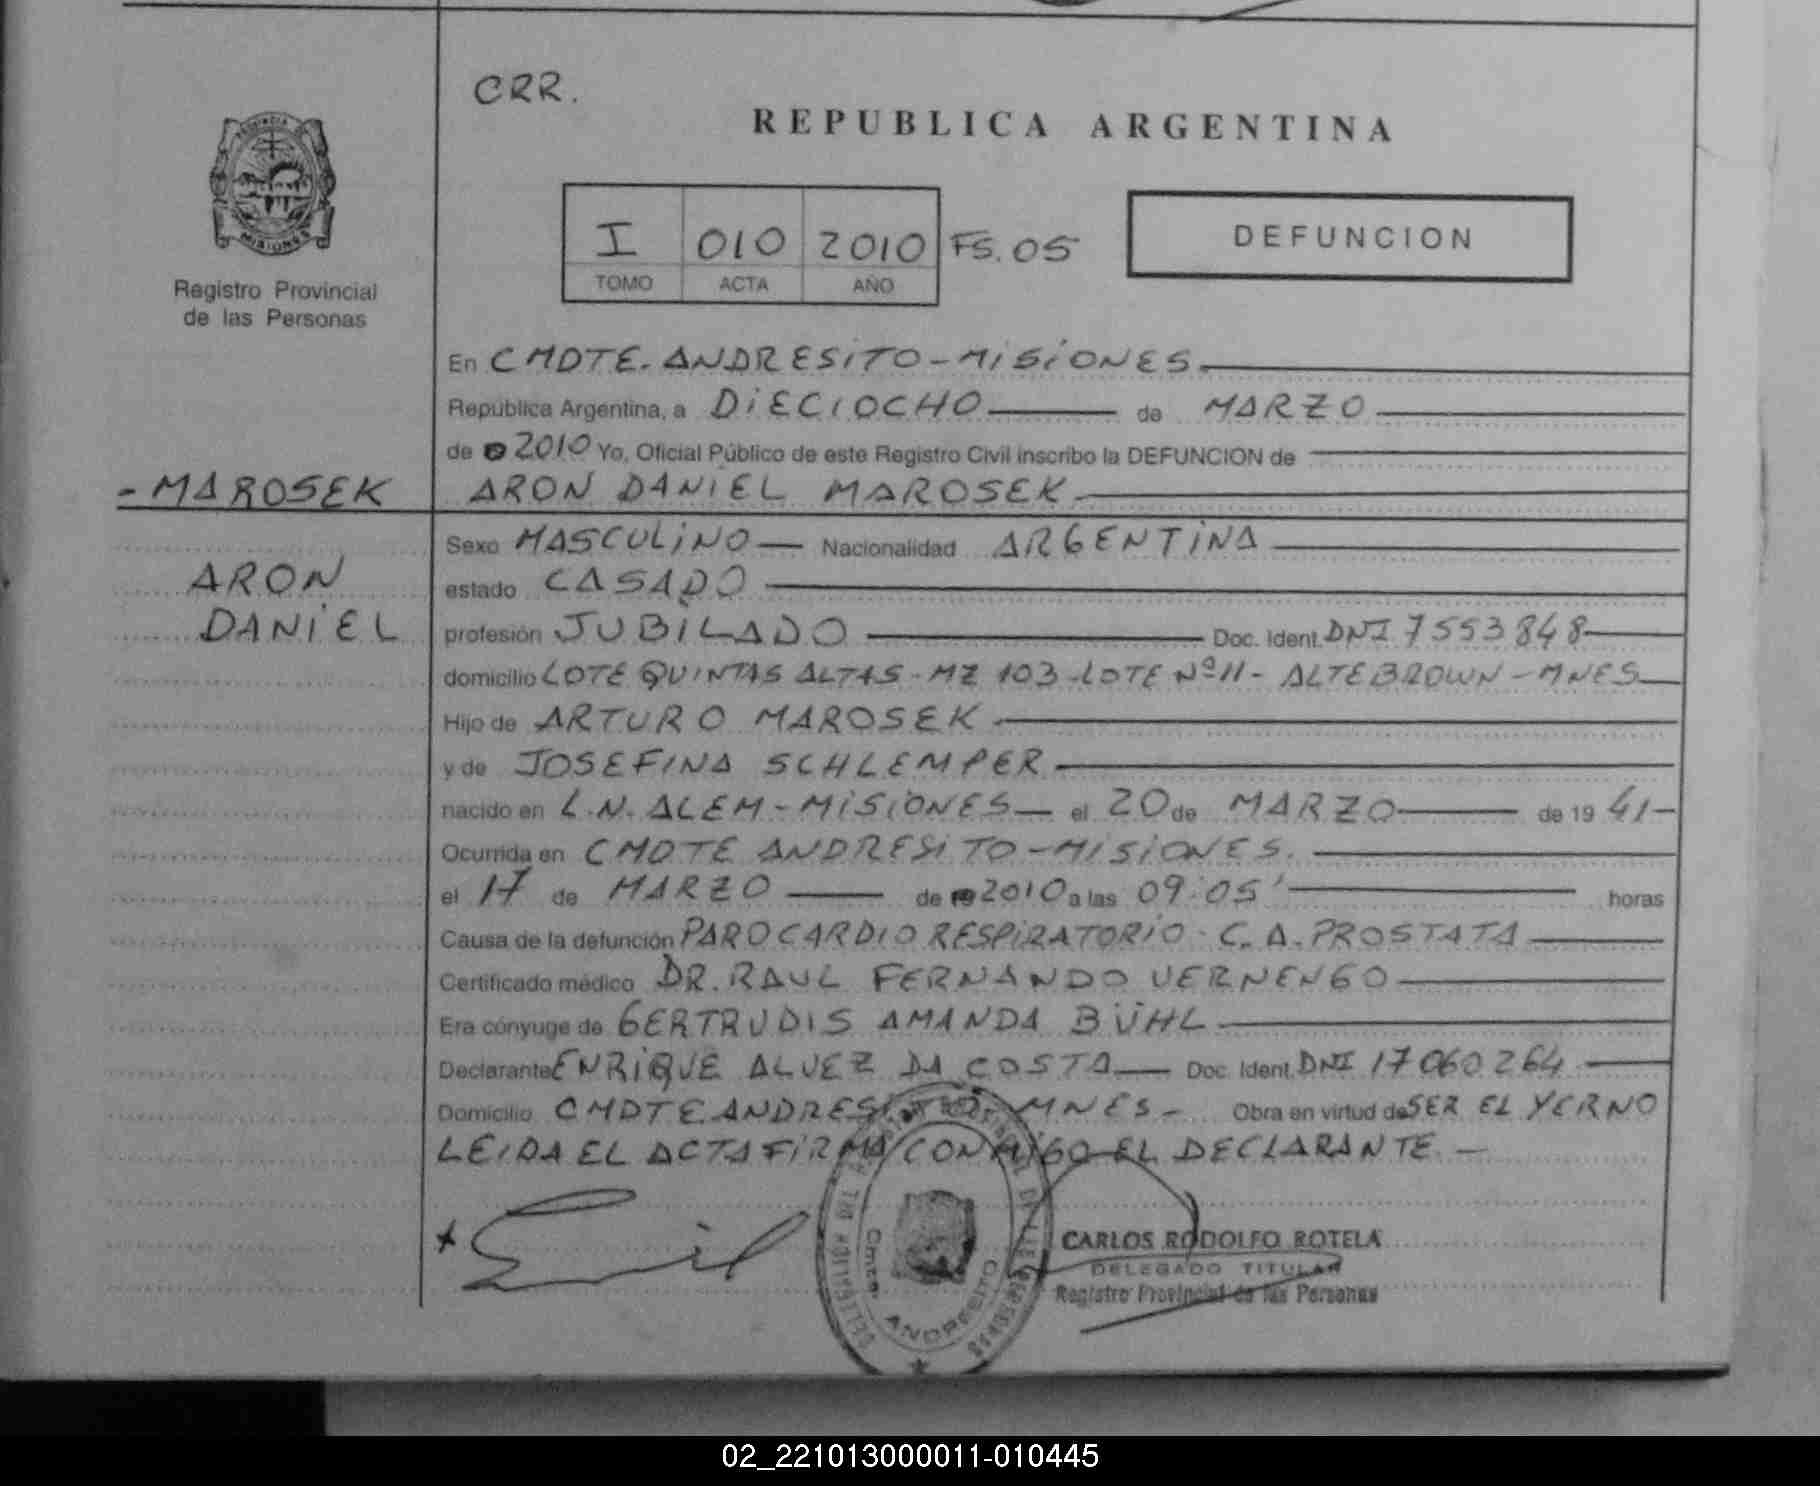 CRR.
REPUBLICA ARGENTINA
PROVINCIA DE
MISIONES
Registro Provincial
de las Personas
I 010 2010 FS. 05
TOMO ACTA AÑO
DEFUNCION
En CMDTE. ANDRESITO - MISIONES
República Argentina, a DIECIOCHO de MARZO
de 2010 Yo, Oficial Público de este Registro Civil inscribo la DEFUNCION de
- MAROSEK ARON DANIEL MAROSEK
Sexo MASCULINO Nacionalidad ARGENTINA
ARON
DANIEL
estado CASADO
profesión JUBILADO Doc. Ident. DNI 7553848
domicilio LOTE QUINTAS ALTAS - MZ 103 - LOTE Nº 11 - ALTE BROWN - MNES
Hijo de ARTURO MAROSEK
y de JOSEFINA SCHLEMPER
nacido en L.N. ALEM - MISIONES el 20 de MARZO de 19 41 -
Ocurrida en CMDTE ANDRESITO - MISIONES.
el 17 de MARZO de 2010 a las 09:05' horas
Causa de la defunción PARO CARDIO RESPIRATORIO - C. A. PROSTATA
Certificado médico DR. RAUL FERNANDO VERNENGO
Era cónyuge de GERTRUDIS AMANDA BÜHL
Declarante ENRIQUE ALVEZ DA COSTA Doc. Ident. DNI 17060264
Domicilio CMDTE ANDRESITO MNES - Obra en virtud de SER EL YERNO
LEIDA EL ACTA FIRMA CONMIGO EL DECLARANTE. -
Cmte. ANDRESITO
CARLOS RODOLFO ROTELA
DELEGADO TITULAR
Registro Provincial de las Personas
02_221013000011-010445